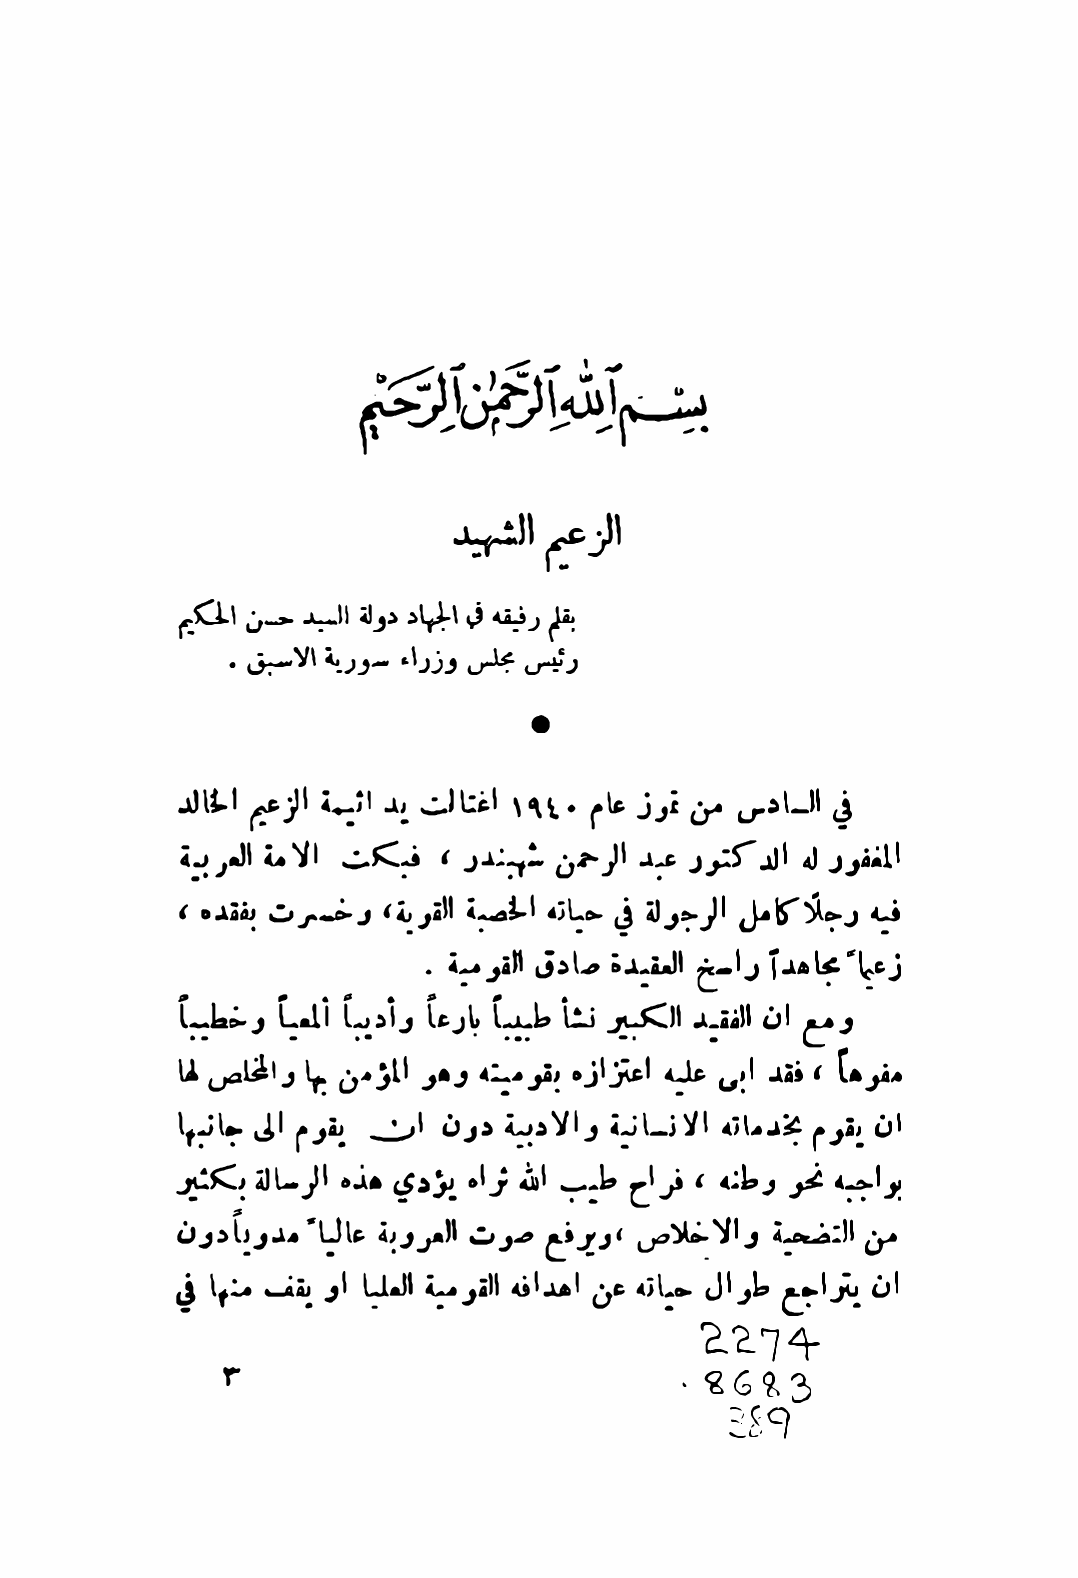 بِسْمِ ٱللَّهِ ٱلرَّحْمَٰنِ ٱلرَّحِيْمِ
الزعيم الشهيد
بقلم رفيقه في الجهاد دولة السيد حسن الحكيم
رئيس مجلس وزراء سورية الاسبق .
●
في السادس من تموز عام ١٩٤٠ اغتالت يد اثيمة الزعيم الخالد
المغفور له الدكتور عبد الرحمن شهبندر ، فبكت الامة العربية
فيه رجلاً كامل الرجولة في حياته الخصبة القوية، وخسرت بفقده ،
زعيماً مجاهداً راسخ العقيدة صادق القومية .
ومع ان الفقيد الكبير نشأ طبيباً بارعاً وأديباً ألمعياً وخطيباً
مفوهاً ، فقد ابى عليه اعتزازه بقوميته وهو المؤمن بها والمخلص لها
ان يقوم بخدماته الانسانية والادبية دون ان يقوم الى جانبها
بواجبه نحو وطنه ، فراح طيب الله ثراه يؤدي هذه الرسالة بكثير
من التضحية والاخلاص ، ويرفع صوت العروبة عالياً مدوياً دون
ان يتراجع طوال حياته عن اهدافه القومية العليا او يقف منها في
2274
.8683
389
٣